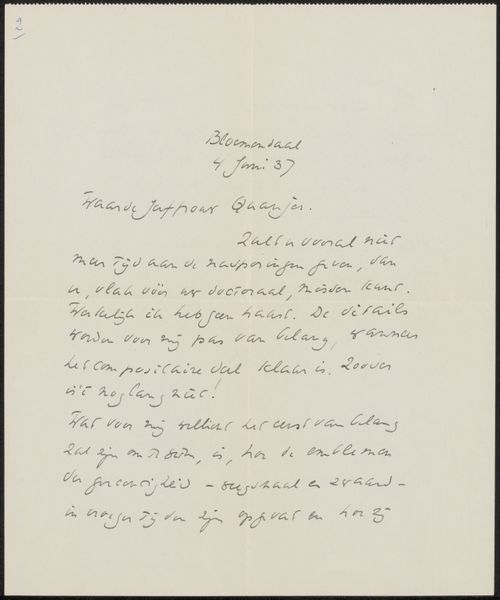 2
Bloemendaal
4 Juni 37
Waarde Juffrouw Quanjer.
Zult u vooral niet
meer tijd aan de nasporingen geven, dan
u, vlak vóór uw doctoraal, missen kunt.
Werkelijk ik heb geen haast. De details
worden voor mij pas van belang, wanneer
het compositaire deel klaar is. Zoover
is 't nog lang niet!
Wat voor mij wellicht het eerst van belang
zal zijn om te weten, is, hoe de emblemen
der gerechtigheid – weegschaal en zwaard –
in vroeger tijden zijn opgevat en hoe zij